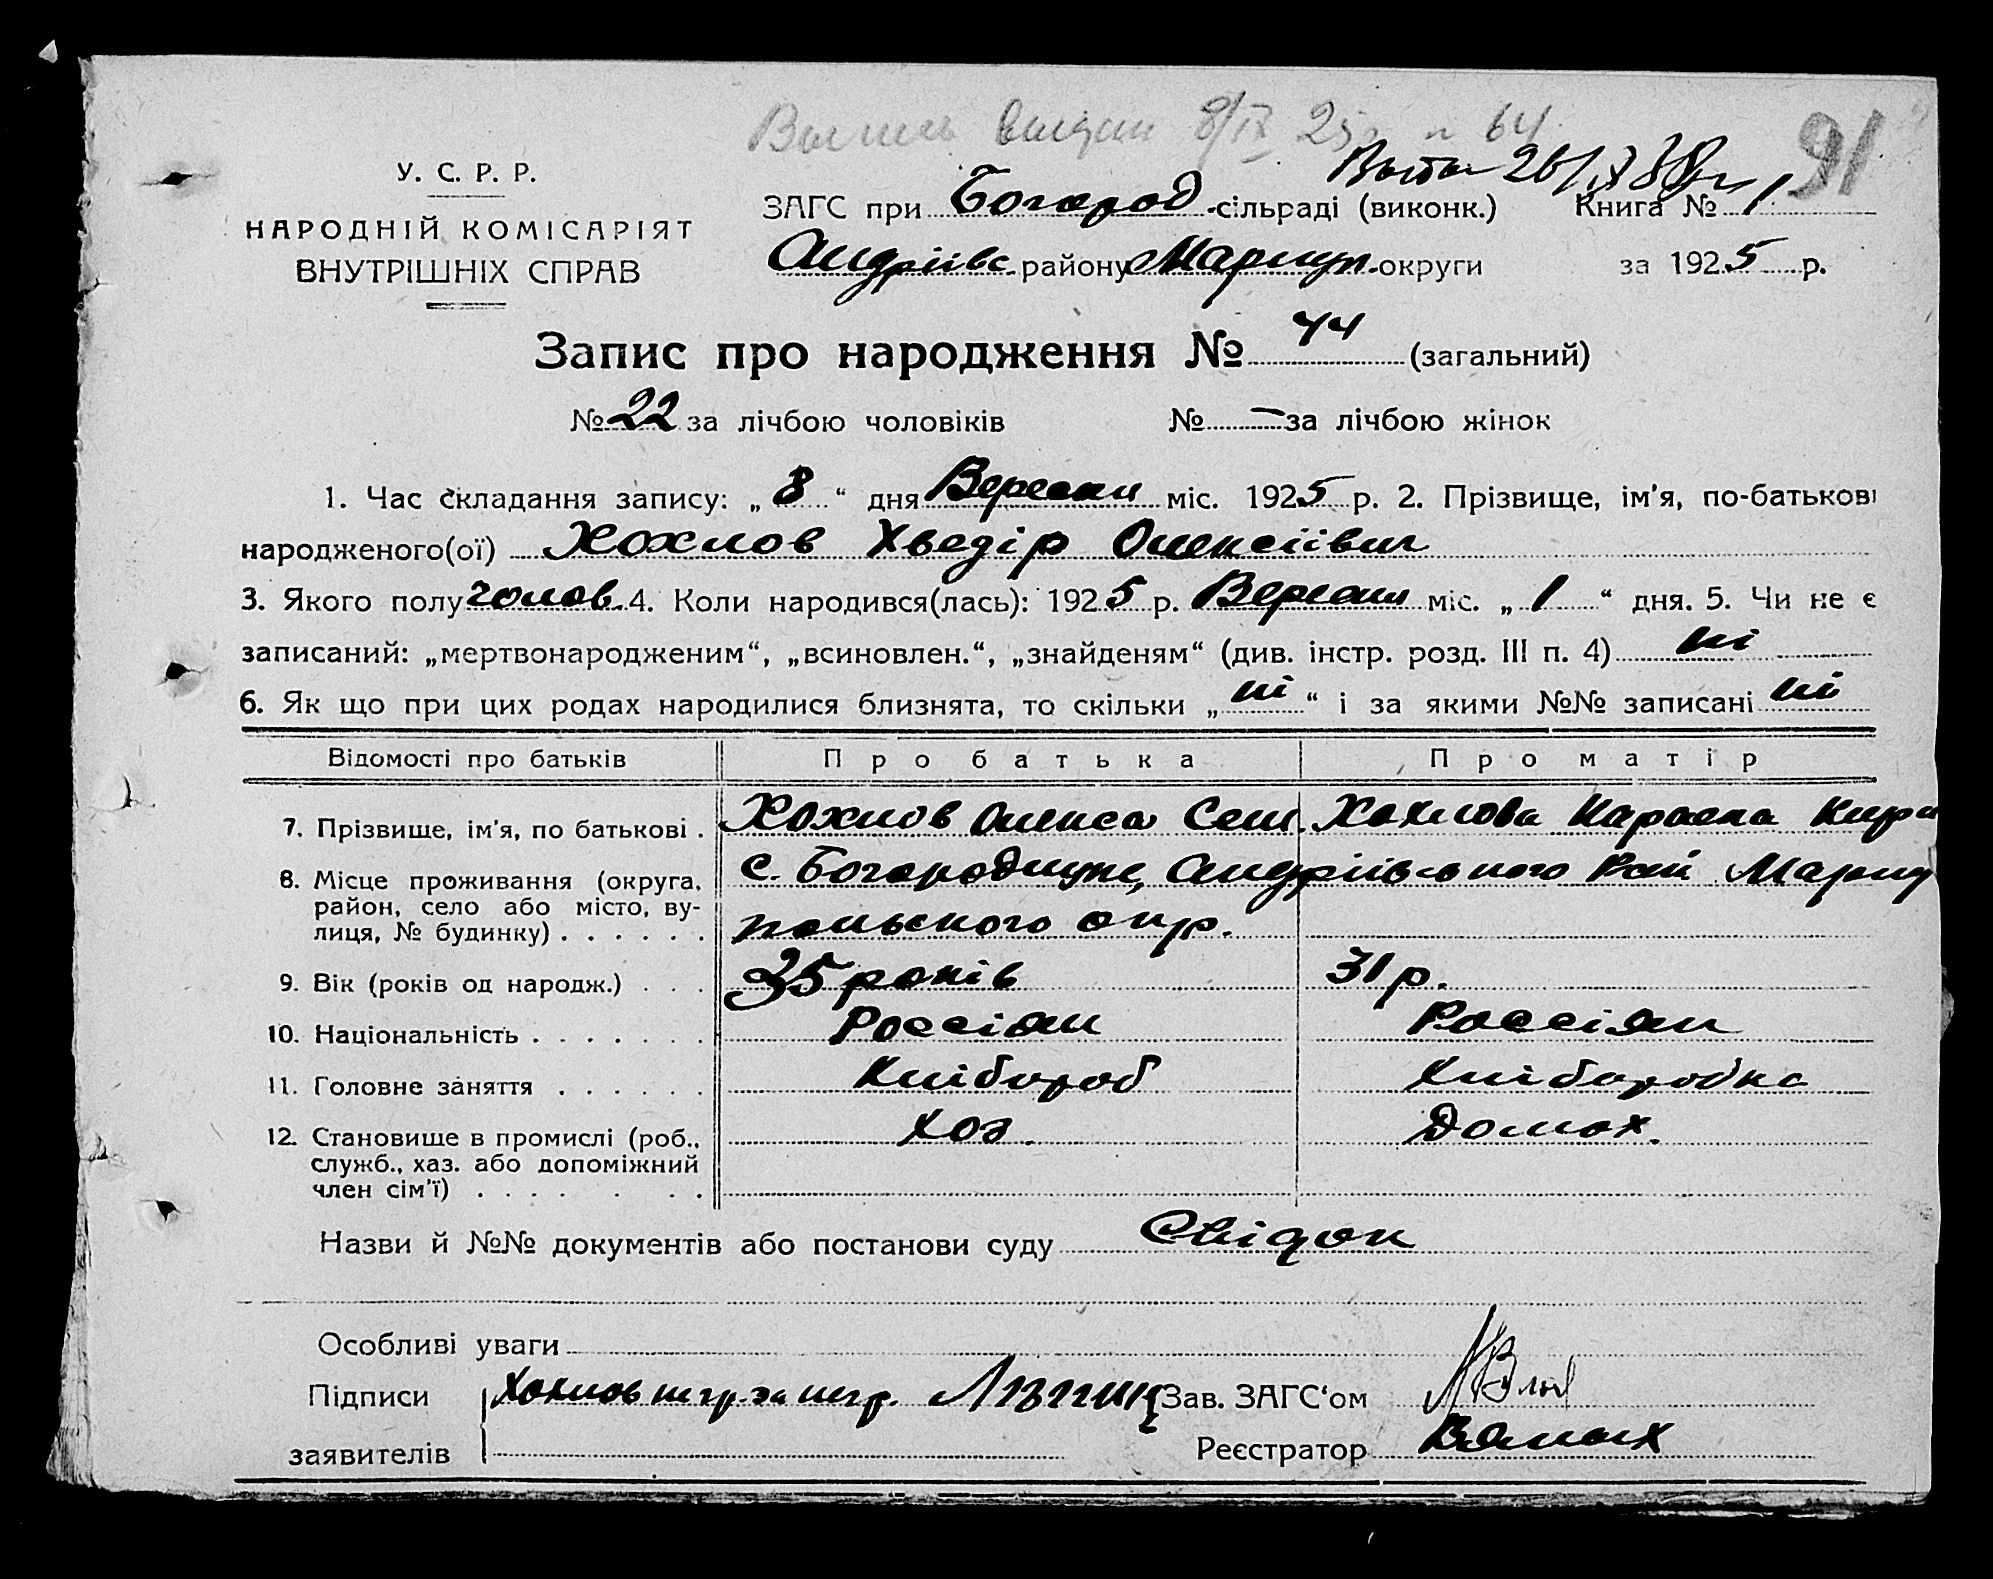 Выпись выдан 8/IX 25 г. n 64
91
26/IX 38 г.
У. С. Р. Р.
НАРОДНІЙ КОМІСАРІЯТ
ВНУТРІШНІХ СПРАВ
ЗАГС при Богород. сільраді (виконк.) Книга № 1
Андріївс. району Маріуп. округи за 1925 р.
Запис про народження № 44 (загальний)
№ 22 за лічбою чоловіків № — за лічбою жінок
1. Час складання запису: „ 8 “ дня Вересня міс. 1925 р. 2. Прізвище, ім’я, по-батькові
народженого(ої) Хохлов Хведір Олексіївич
3. Якого полу чолов. 4. Коли народився(лась): 1925 р. Вересня міс. „ 1 “ дня. 5. Чи не є
записаний: „мертвонародженим“, „всиновлен.“, „знайденям“ (див. інстр. розд. III п. 4) ні
6. Як що при цих родах народилися близнята, то скільки „ ні “ і за якими №№ записані ні
Відомості про батьків Про батька Про матір
7. Прізвище, ім’я, по батькові . Хохлов Олекса Сем. Хохлова
8. Місце проживання (округа, с. Богородичне, Андріївського Рай Маріу
район, село або місто, ву-
лиця, № будинку) . . . . . . польського окр.
9. Вік (років од народж.) . . . 35 років 31 р.
10. Національність . . . . . . . Россіян Россіян
11. Головне заняття . . . . . . Хлібороб Хліборобка
12. Становище в промислі (роб., Хоз. Домох.
служб., хаз. або допоміжний
член сім’ї) . . . . . . .
Назви й №№ документів або постанови суду Свідок
Особливі уваги
Підписи Хохлов негр. за негр. Зав. ЗАГС‘ом
заявителів Реєстратор